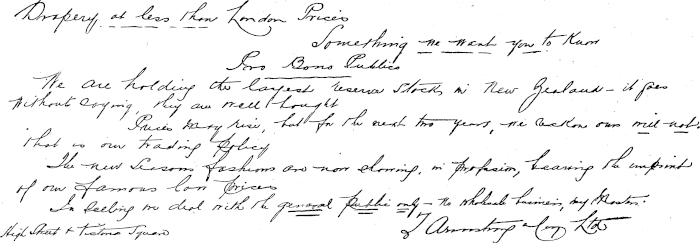 Drapery at less than London Prices
Something we want you to Know
Pro Bono Publico
We are holding the largest reserve stocks in New Zealand - it goes
without saying, they are well bought
Prices may rise, but for the next two years, we reckon ours will not,
that is our trading policy
The new seasons fashions are now showing, in profusion, bearing the imprint
of our famous low prices
In selling we deal with the general public only - no wholesale business, my Masters.
T Armstrong & Coy Ltd
High Street & Victoria Square